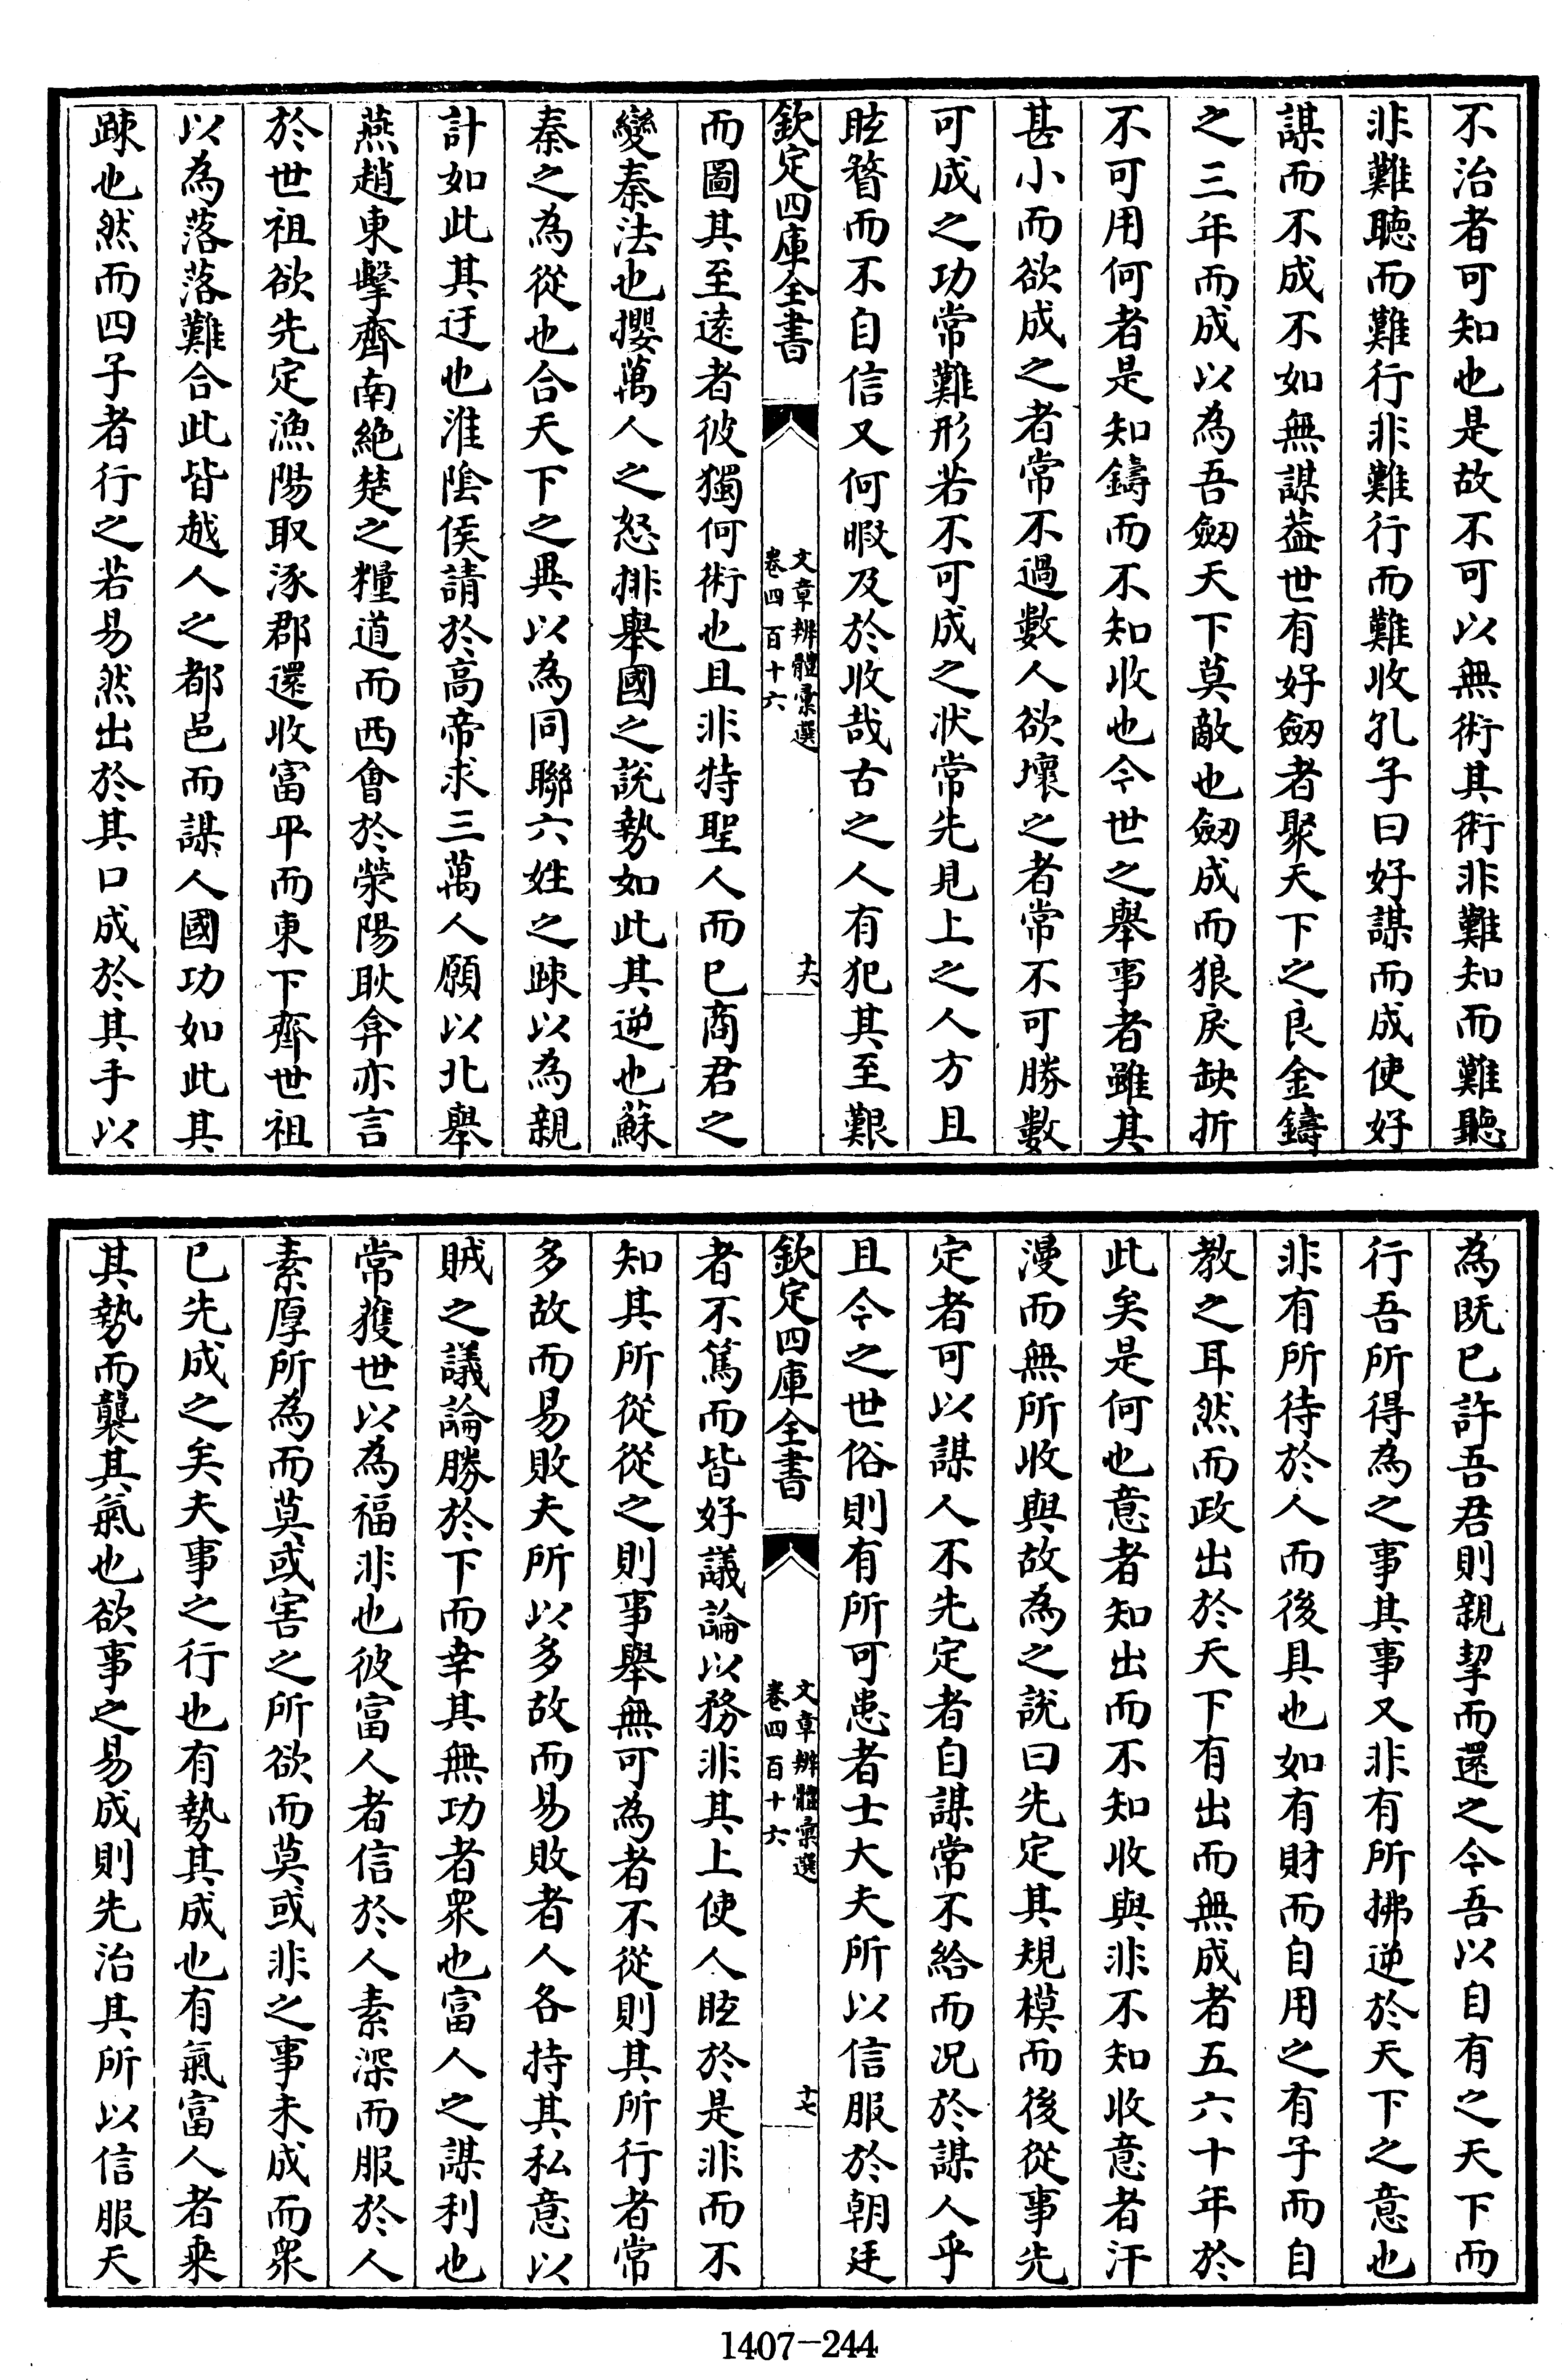 不治者可知也是故不可以無術其術非難知而難聽
非難聽而難行非難行而難收孔子曰好謀而成使好
謀而不成不如無謀葢世有好劒者聚天下之良金鑄
之三年而成以為吾劒天下莫敵也劒成而狼戾缺折
不可用何者是知鑄而不知收也今世之舉事者雖其
甚小而欲成之者常不過數人欲壞之者常不可勝數
可成之功常難形若不可成之狀常先見上之人方且
眩瞀而不自信又何暇及於收哉古之人有犯其至艱
欽定四庫全書
文章辨體彙選
卷四百十六
十六
而圖其至遠者彼獨何術也且非特聖人而已商君之
變秦法也攖萬人之怒排舉國之說勢如此其逆也蘇
秦之為從也合天下之異以為同聯六姓之踈以為親
計如此其迂也淮陰侯請於高帝求三萬人願以北舉
燕趙東擊齊南絶楚之糧道而西會於滎陽耿弇亦言
於世祖欲先定漁陽取涿郡還收富平而東下齊世祖
以為落落難合此皆越人之都邑而謀人國功如此其
踈也然而四子者行之若易然出於其口成於其手以
為既已許吾君則親挈而還之今吾以自有之天下而
行吾所得為之事其事又非有所拂逆於天下之意也
非有所待於人而後具也如有財而自用之有子而自
教之耳然而政出於天下有出而無成者五六十年於
此矣是何也意者知出而不知收與非不知收意者汗
漫而無所收與故為之說曰先定其規模而後從事先
定者可以謀人不先定者自謀常不給而况於謀人乎
且今之世俗則有所可患者士大夫所以信服於朝廷
欽定四庫全書
文章辨體彙選
卷四百十六
十七
者不篤而皆好議論以務非其上使人眩於是非而不
知其所從從之則事舉無可為者不從則其所行者常
多故而易敗夫所以多故而易敗者人各持其私意以
賊之議論勝於下而幸其無功者衆也富人之謀利也
常獲世以為福非也彼富人者信於人素深而服於人
素厚所為而莫或害之所欲而莫或非之事未成而衆
已先成之矣夫事之行也有勢其成也有氣富人者乗
其勢而襲其氣也欲事之易成則先治其所以信服天
1407-244